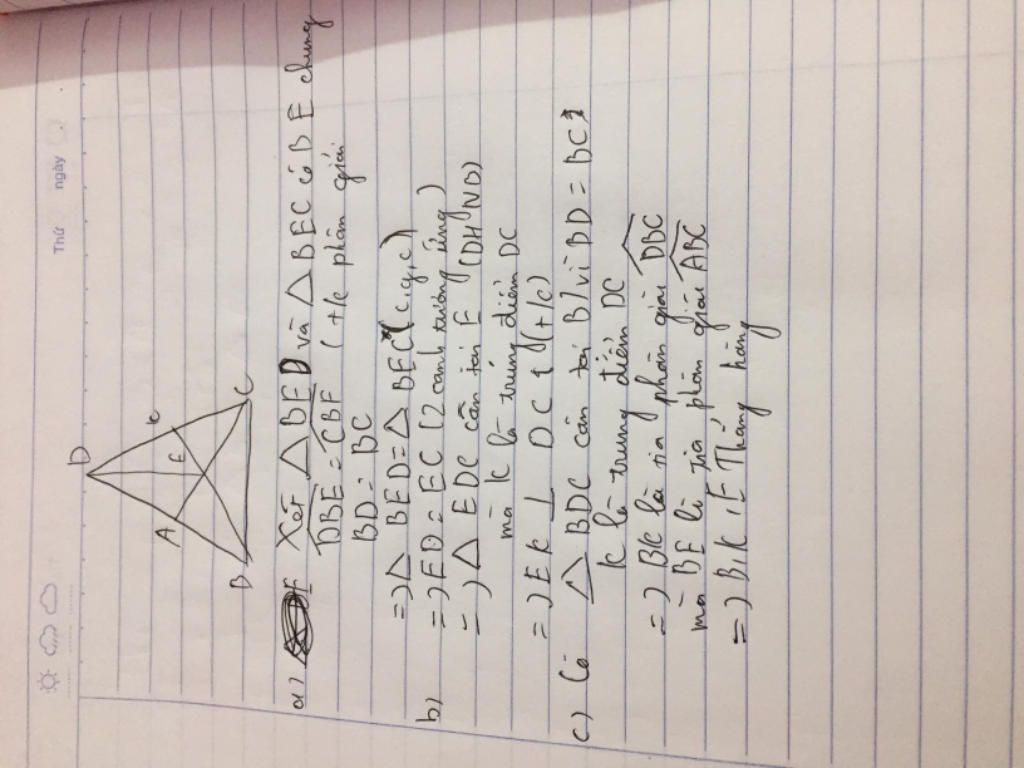 Thứ ngày
D
A
K
E
B
C
a) Xét △BED và △BEC có BE chung
DBE = CBE (t/c phân giác
BD = BC
=) △ BED = △ BEC (c.g.c)
b) =) ED = EC (2 cạnh tương ứng)
=) △ EDC cân tại E (DHND)
mà K là trung điểm DC
=) EK ⊥ DC (t/c)
c) Có △ BDC cân tại B (vì BD = BC)
K là trung điểm DC
=) BK là tia phân giác DBC
mà BE là tia phân giác ABC
=) B, K, E Thẳng hàng